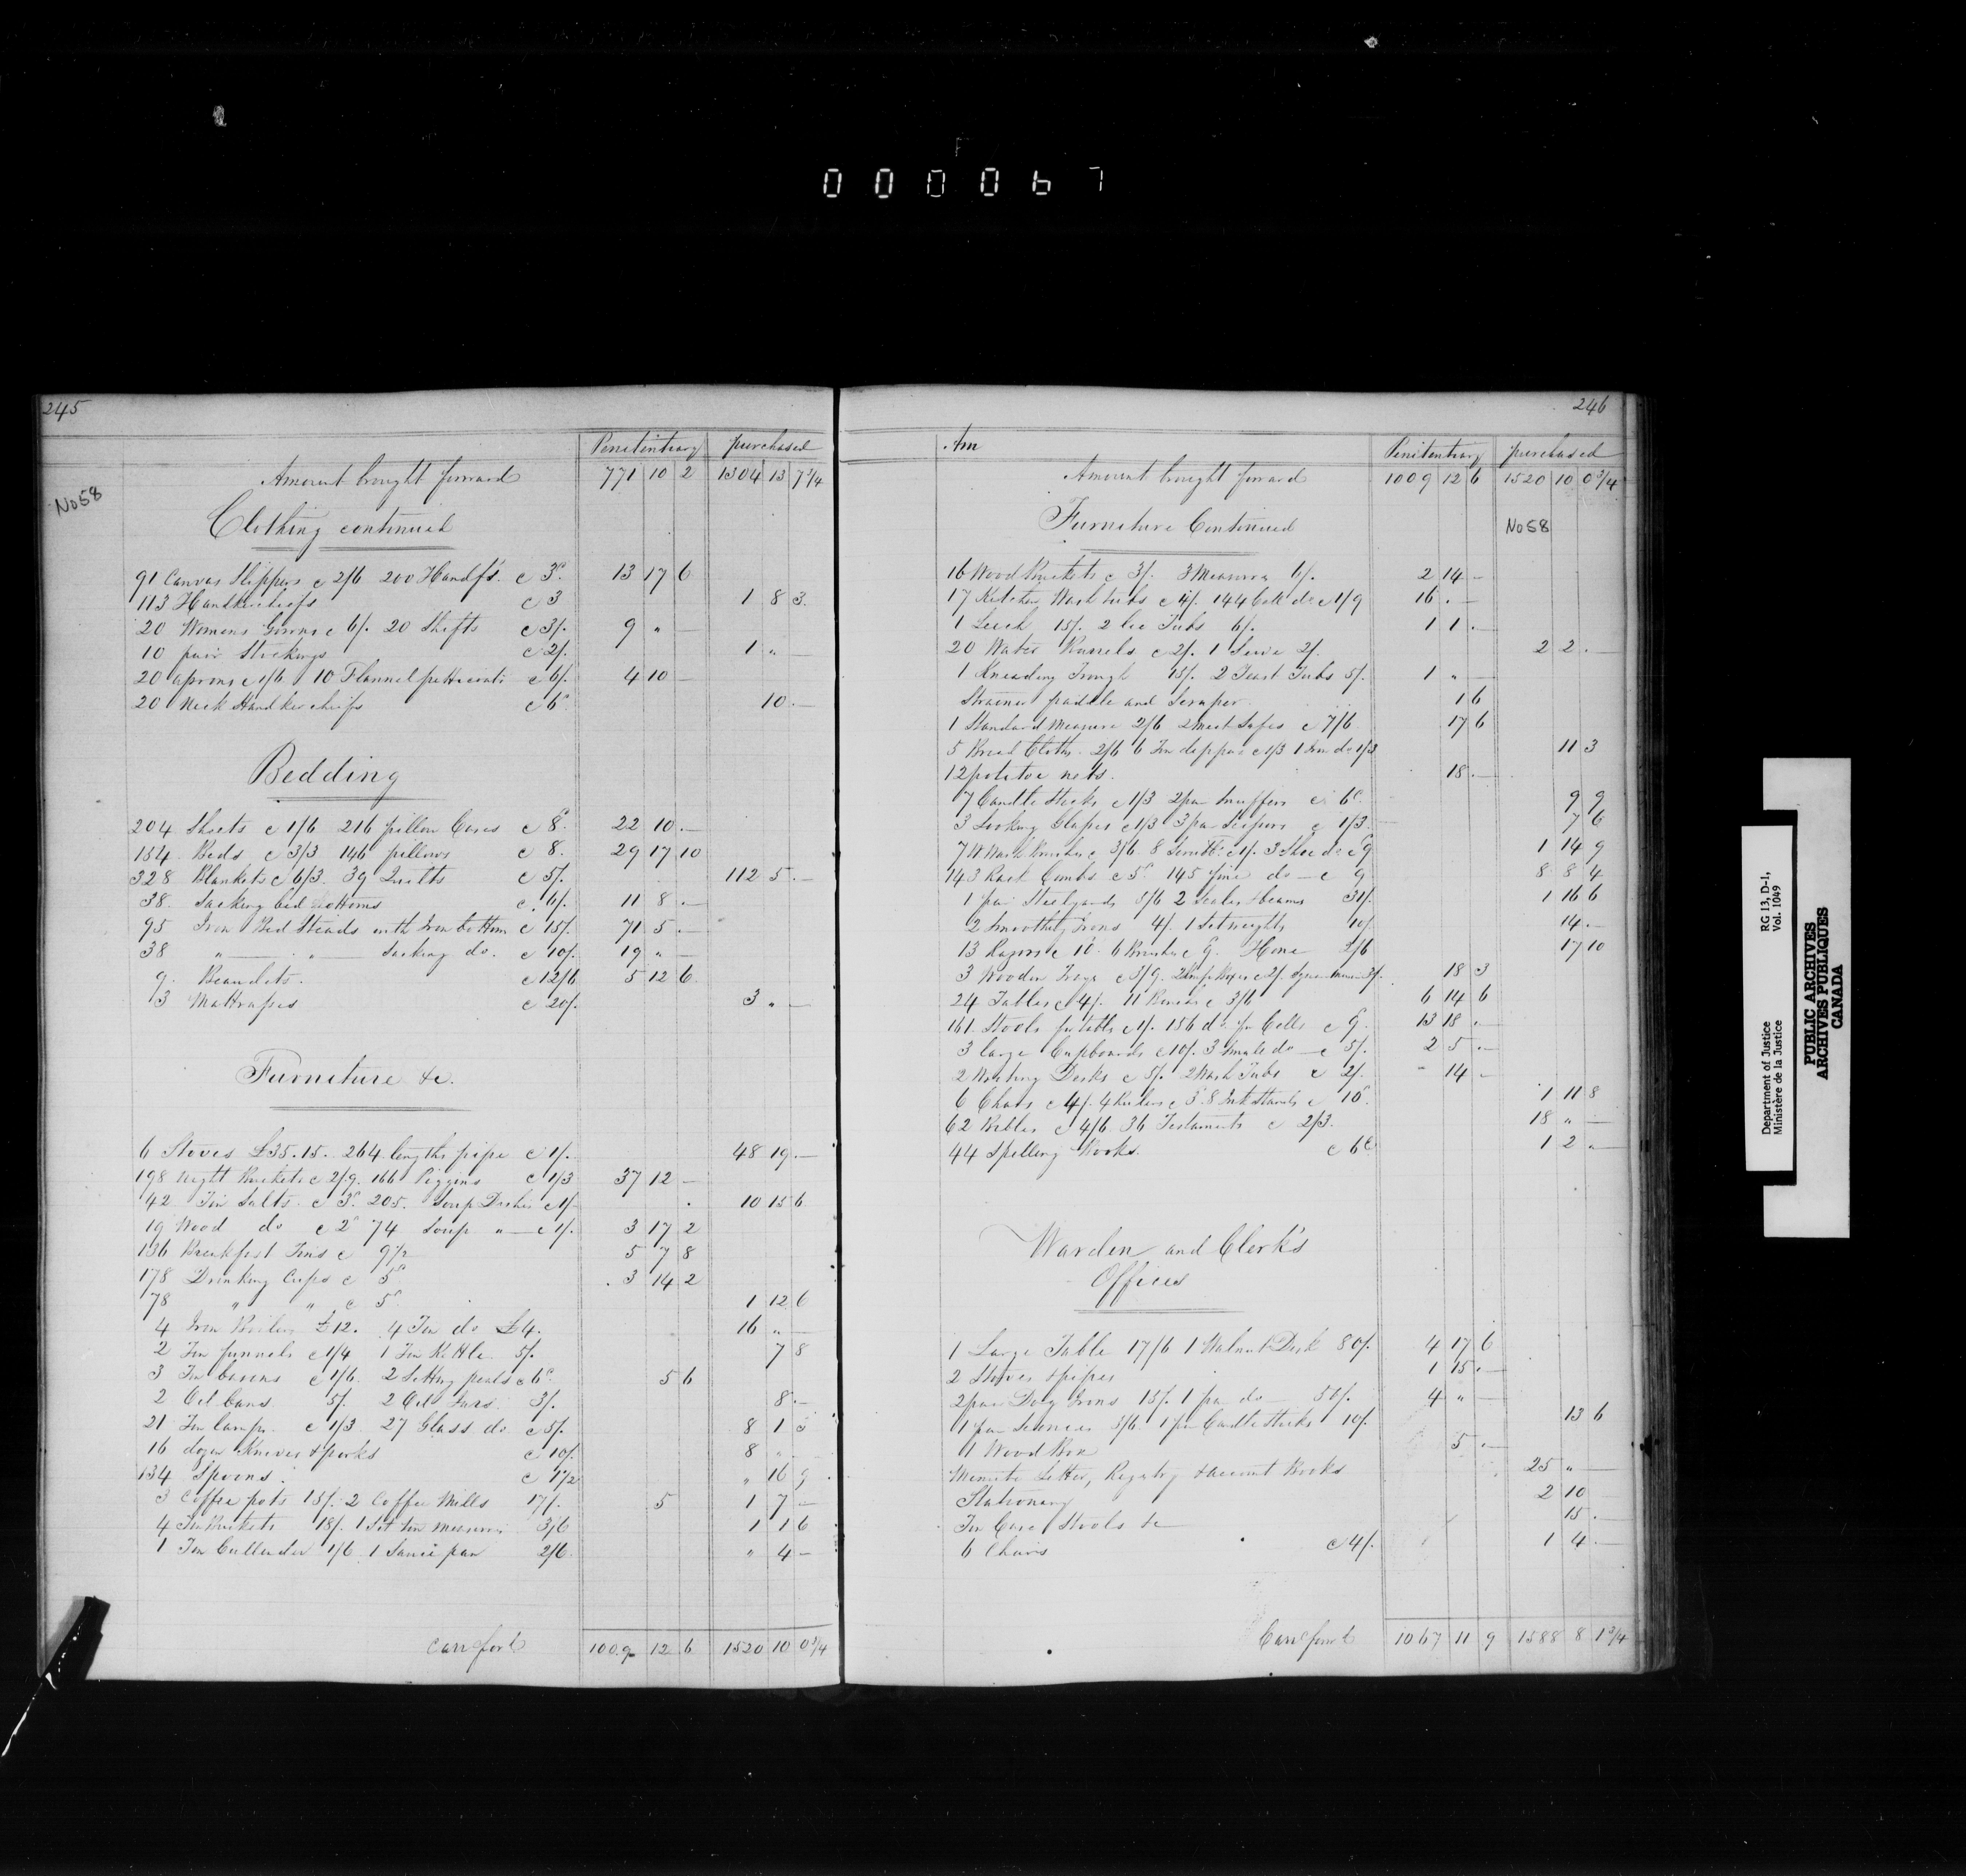 000067
245
Penitentiary purchased
Amount brought forward 771 10 2 1304 13 7 3/4
No 58
Clothing continued
91 Canvas Slippers @ 2/6 200 Handfs. @ 3d. 13 17 6
113 Handkerchiefs @ 3 1 8 3
20 Womens Gowns @ 6/. 20 Shifts @ 3/. 9 " —
10 pair Stockings @ 2/. 1 " —
20 aprons @ 1/6 10 Flannel petticoats @ 6/. 4 10 —
20 Neck Handkerchiefs @ 6d. 10 . —
Bedding
204 Sheets @ 1/6 216 pillow Cases @ 8d. 22 10 . —
184 Beds @ 3/3 146 pillows @ 8. 29 17 10
328 Blankets @ 6/3. 39 Quilts @ 5/. 112 5 . —
38. Sacking bed bottoms @ 6/. 11 8 . —
95 Iron Bed Steads with Iron bottom @ 15/. 71 5 . —
38 " — " — Sacking do. @ 10/. 19 " —
9. @ 12/6 5 12 6
3 Mattrasses @ 20/. 3 " —
Furniture &c.
6 Stoves £35.15. 264 lengths pipe @ 1/. 48 19 . —
198 Night Buckets @ 2/9. 166 Piggins @ 1/3 37 12 —
42 Tin Salts. @ 3d. 205. Soup Dishes @ 1/- 10 15 6
19 Wood do @ 2d 74 Soup " — @ 1/. 3 17 2
136 Breakfast Tins @ 9 1/2 5 7 8
178 Drinking Cups @ 5d 3 14 2
78 " " @ 5d. 1 12 6
4 Iron Boilers £12. 4 Tin do £4. 16 " —
2 Tin funnels @ 1/4 1 Tin Kettle 5/. 7 8
3 Tin basins @ 1/6. 2 Setting peals @ 6d. 5 6
2 Oil Cans 5/. 2 Oil Jars. 3/. 8 . —
21 Tin lamps @ 1/3 27 Glass do @ 5/. 8 1 3
16 dozen Knives & forks @ 10/. 8 " —
134 Spoons. @ 1 1/2 " 16 9
3 Coffee pots 15/. 2 Coffee Mills 17/. 5 1 7 —
4 Tin Buckets 18/. 1 Set tin measures 3/6 1 1 6
1 Tin Cullender 1/6 1 Sauce pan 2/6. " 4 —
Carrd. ford. 1009 12 6 1520 10 0 3/4
246
Am
Penitentiary purchased
Amount brought forward 1009 12 6 1520 10 0 3/4
Furniture Continued
No 58
16 Wood Buckets @ 3/. 3 Measures 6/. 2 14 —
17 Kitchen Wash tubs @ 4/. 144 Cell do @ 1/9 16 . —
1 Leech 15/. 2 Tubs 6/. 1 1 . —
20 Water Barrels @ 2/. 1 Sieve 2/. 2 2 . —
1 Kneading Trough 15/. 2 Yeast Tubs 5/. 1 " —
Strainer paddle and Scraper 1 6
1 Standard Measure 2/6 2 Meat Safes @ 7/6 17 6
5 Bread Cloths. 2/6 6 Tin dippers @ 1/3 1 Iron do 1/3 11 3
12 potatoe nets. 18 . —
7 Candle Sticks @ 1/3 2 pair Snuffers @ 6d. 9 9
3 Looking Glasses @ 1/3 3 pair Scissors @ 1/3 7 6
7 W Wash Brushes @ 3/6 8 @ 1/. 3 Shoe do @ 9 1 14 9
143 Rack Combs @ 5d. 145 fine do — @ 9 8 8 4
1 pair Steelyards 5/6 2 Scales & beams 31/. 1 16 6
2 Smoothing Irons 4/. 1 Set weights 10/. 14 . —
13 Razors @ 10. 6 Brushes @ 9. Hone 3/6 17 10
3 Wooden Trays @ 3/9. 2 @ 2/. 3/. 18 3
24 Tables @ 4/. 11 @ 3/6 6 14 6
161. Stools for table @ 1/. 156 do. for Cells @ 9 13 18 . —
3 large Cupboards @ 10/. 3 Small do — @ 5/. 2 5 . —
2 Writing Desks @ 5/. 2 Wash Tubs @ 2/. 14 —
6 Chairs @ 4/. 4 Rulers @ 3. 8 Ink Stands @ 10d. 1 11 8
62 Bibles @ 4/6 36 Testaments @ 2/3. 18 " —
44 Spelling Books. @ 6d 1 2 " —
Warden and Clerk's
Offices
1 Large Table 17/6 1 Walnut Desk 80/. 4 17 6
2 Stoves & pipes 1 15 . —
2 pair Dog Irons 15/. 1 pair do — 50/. 4 " —
1 pair 3/6 1 pair Candlesticks 10/. 13 6
1 Wood Box 5 . —
Minute Letter, Registry & account Books 25 " —
Stationary 2 10
Tin Case Stools &c 15 . —
6 Chairs @ 4/. 1 4 . —
Carrd. ford. 1067 11 9 1588 8 1 3/4
Department of Justice
Ministère de la Justice
RG 13, D-1,
Vol. 1049
PUBLIC ARCHIVES
ARCHIVES PUBLIQUES
CANADA